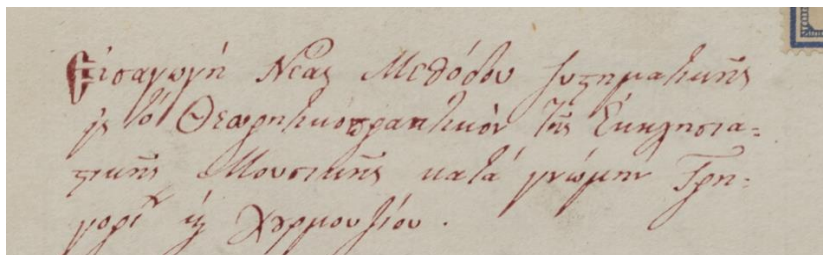 Εἰσαγωγὴ Νέας Μεθόδου Συστηματικῆς
εἰς τὸ Θεωρητικόπρακτικὸν τῆς Ἐκκλησια-
στικῆς Μουσικῆς κατὰ γνώμην Γρη-
γορίου καὶ Χουρμουζίου.